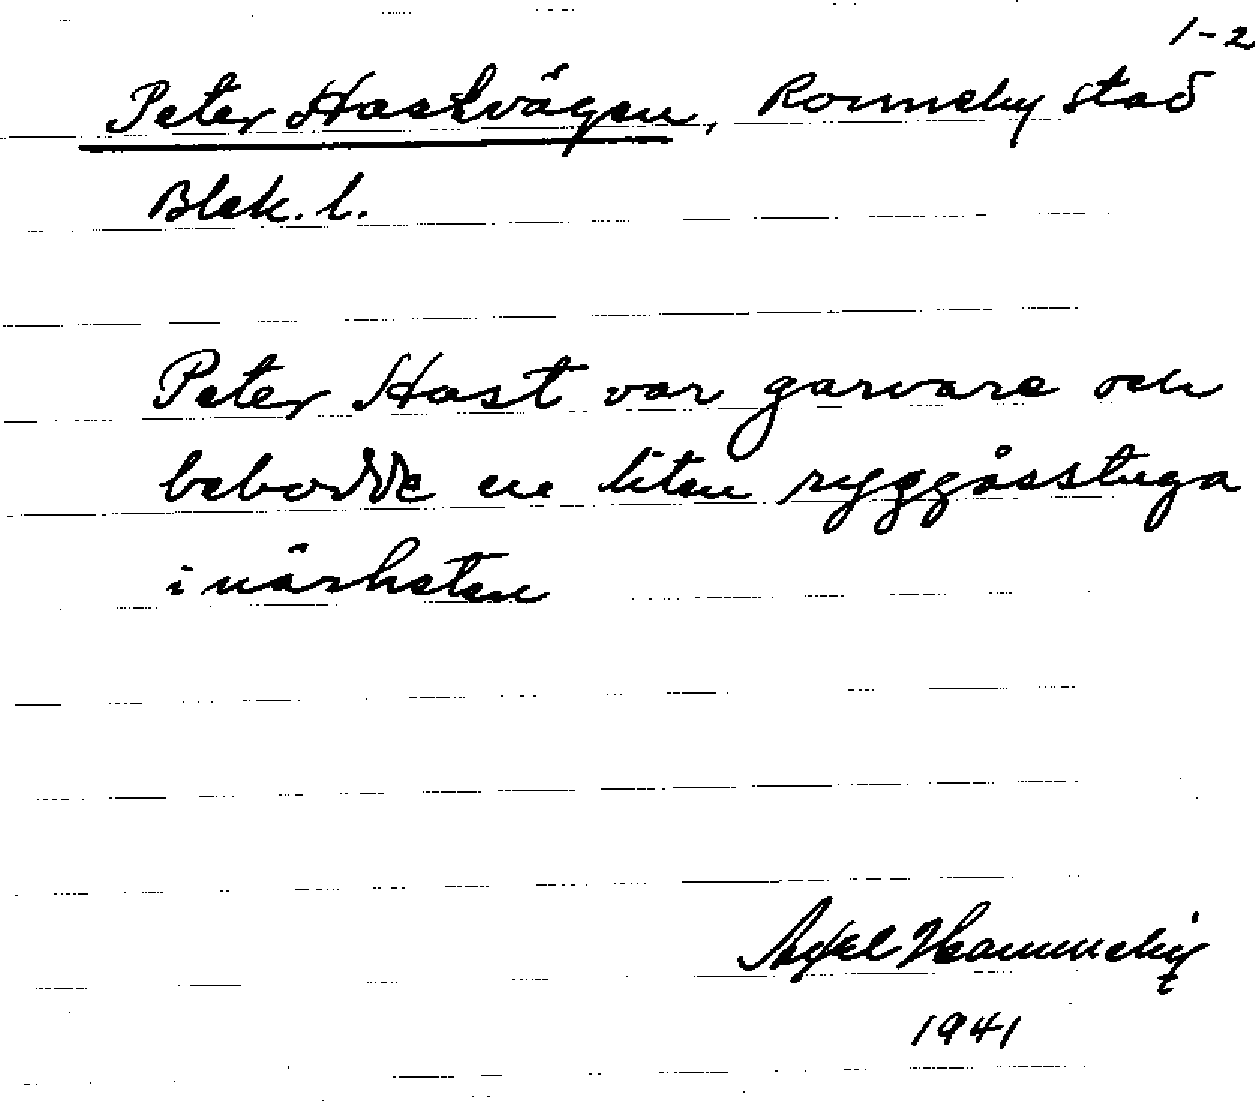 1-2
Peter Hastvägen, Ronneby stad
Blek. l.
Peter Hast var garvare och
bebodde en liten ryggåsstuga
i närheten
Axel
1941